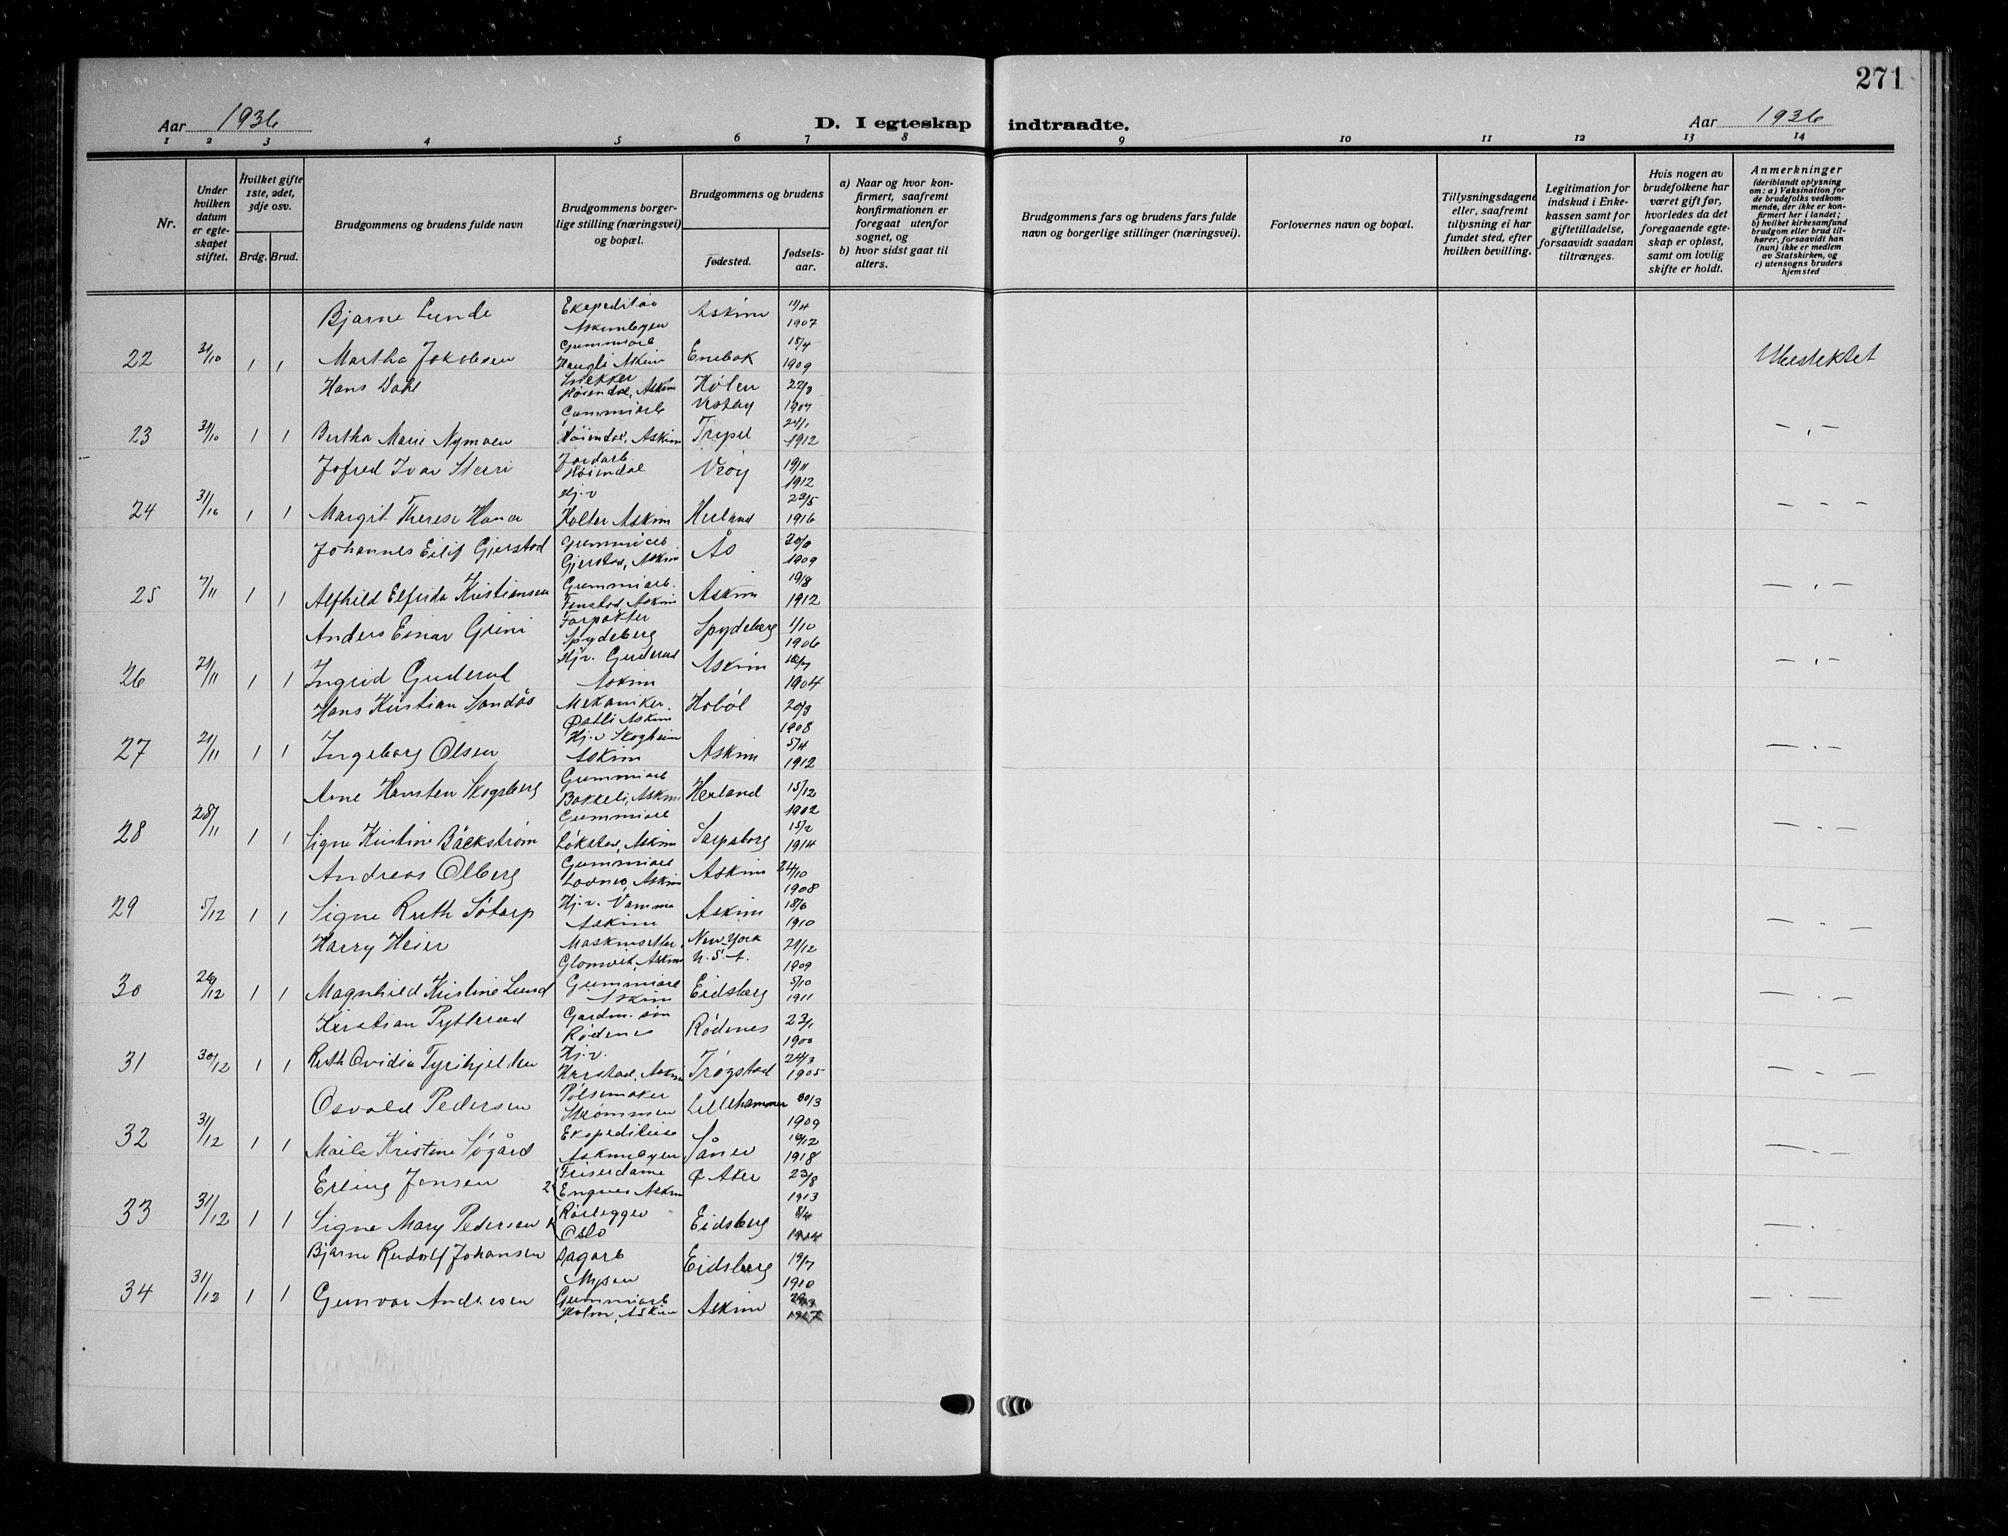 271
Aar 1936
D. I egteskap indtraadte.
Aar 1936
1 2 3 4 5 6 7 8 9 10 11 12 13 14
Nr.
Under hvilken datum er egteskapet stiftet.
Hvilket gifte 1ste, 2det, 3dje osv.
Brdg. Brud.
Brudgommens og brudens fulde navn
Brudgommens borgerlige stilling (næringsvei) og bopæl.
Brudgommens og brudens
fødested.
fødselsaar.
a) Naar og hvor konfirmert, saafremt konfirmationen er foregaat utenfor sognet, og
b) hvor sidst gaat til alters.
Brudgommens fars og brudens fars fulde navn og borgerlige stillinger (næringsvei).
Forlovernes navn og bopæl.
Tillysningsdagene eller, saafremt tillysning ei har fundet sted, efter hvilken bevilling.
Legitimation for indskud i Enkekassen samt for giftetilladelse, forsaavidt saadan tiltrænges.
Hvis nogen av brudefolkene har været gift før, hvorledes da det foregaaende egteskap er opløst, samt om lovlig skifte er holdt.
Anmerkninger
(deriblandt oplysning om: a) Vaksination for de brudefolks vedkommende, der ikke er konfirmert her i landet; b) hvilket kirkesamfund brudgom eller brud tilhører, forsaavidt han (hun) ikke er medlem av Statskirken, og c) utensogns bruders hjemsted
Bjarne Lunde Askim 11/4
Askimbyen 1907
22 31/10 1 1 Martha Jakobsen Gummiarb Haugli Askim Enebak 15/4 1909
Hans Dahl Snekker Høiendal, Askim Hølen Vestby 22/3 1907
23 31/10 1 1 Bertha Marie Nymoen Gummiarb Høiendal, Askim Trysil 24/1 1912 — " —
Jofred Ivar Jordarb Høiendal Veøy 19/11 1912
24 31/10 1 1 Margit Therese Hj.v Holter Askim 1916 — " —
Johannes Eilif Gjerstad Gummiarb Gjerstad, Askim Ås 1909
25 7/11 1 1 Alfhild Elfrida Kristiansen Gummiarb. Askim Askim 19/8 1912 — " —
Anders Einar Grini Forpakter Spydeberg Spydeberg 1/10 1906
26 21/11 1 1 Ingrid Guderud Hj.v. Guderud Askim Askim 1904 — " —
Hans Kristian Sandås Mekaniker. Østli Askim Hobøl 20/3 1908
27 21/11 1 1 Ingeborg Olsen Hj.v Skogheim Askim Askim 5/4 1912 — " —
Arne Hansten Skogsberg Gummiarb Bakkeli, Askim Herland 15/12 1902
28 28/11 1 1 Signe Kristine Bäckstrøm Gummiarb Løkstad, Askim Sarpsborg 15/2 1914 — " —
Andreas Olberg Gummiarb Askim Askim 24/10 1908
29 5/12 1 1 Signe Ruth Søtorp Hj.v. Vamma Askim Askim 18/6 1910 — " —
Harry Heier Glomvik, Askim New-York U.S.A. 1909
30 26/12 1 1 Magnhild Kristine Lund Gummiarb Askim Eidsberg 5/10 1911 — " —
Kristian Pytterud Gardm. søn Rødenes Rødenes 23/1 1900
31 30/12 1 1 Ruth Ovidia Hj.v. Harstad, Askim Trøgstad 24/3 1905 — " —
Osvald Pedersen Pølsemaker Strømmen Lillehammer 30/3 1909
32 31/12 1 1 Kristine Søgård Askimbyen Såner 1918 — " —
Erling Jensen 2 Friserdame Engnes Askim Ø Aker 23/8 1913
33 31/12 1 1 Signe Mary Pedersen Rørlegger Oslo Eidsberg 8/4 1914 — " —
Bjarne Rudolf Johansen Dagarb Mysen Eidsberg 19/7 1910
34 31/12 1 1 Gunvor Andresen Gummiarb Holm, Askim Askim — " —